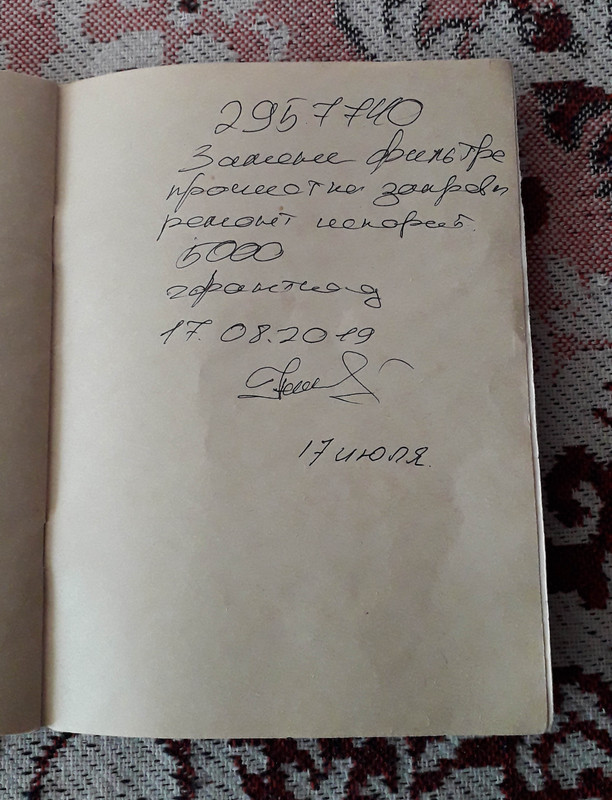 2957740
Замена фильтра
промывка заправка
ремонт испарит.
5000
гарантия
17.08.2019
17 июля.